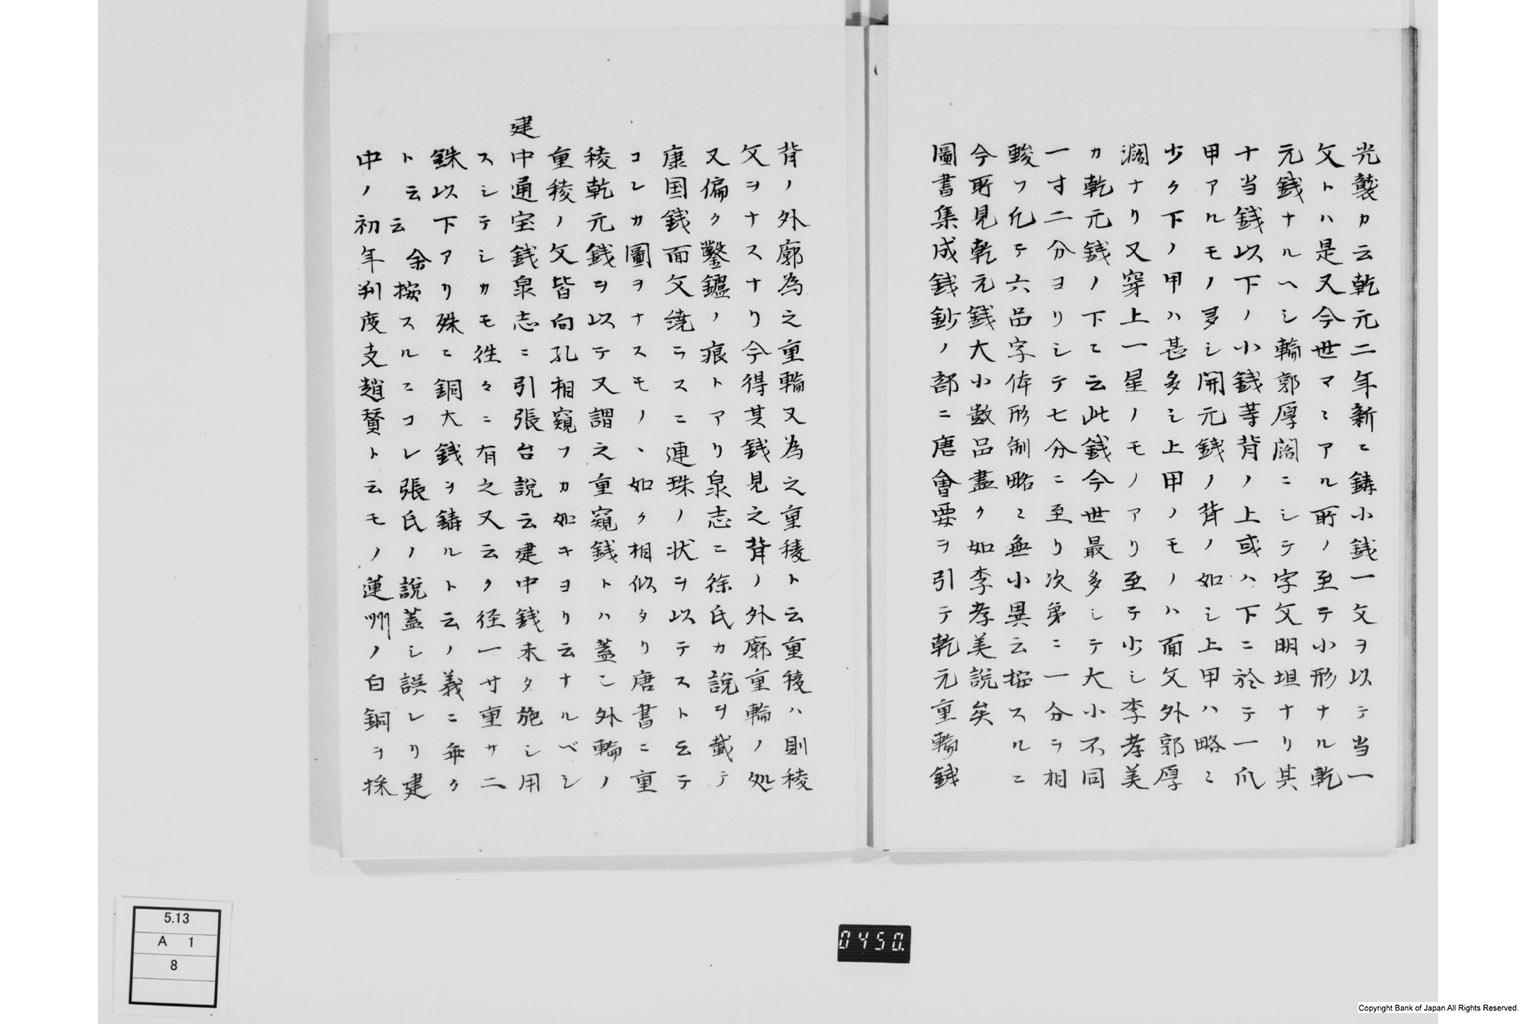 光襲カ云乾元二年新ニ鋳小銭一文ヲ以テ当一
文トハ是又今世マヽアル所ノ至テ小形ナル乾
元銭ナルヘシ輪郭厚濶ニシテ字文明坦ナリ其
十当銭以下ノ小銭等背ノ上或ハ下ニ於テ一爪
甲アルモノ多シ開元銭ノ背ノ如シ上甲ハ略ミ
少ク下ノ甲ハ甚多シ上甲ノモノハ面文外郭厚
濶ナリ又穿上一星ノモノアリ至テ少シ李孝美
カ乾元銭ノ下ニ云此銭今世最多シテ大小不同
一寸二分ヨリシテ七分ニ至リ次第ニ一分ヲ相
較フ凢テ六品字体形制略ミ無小異云按スルニ
今所見乾元銭大小数品盡ク如李孝美説矣
圖書集成銭鈔ノ部ニ唐會要ヲ引テ乾元重輪銭
背ノ外廓為之重輪又為之重稜ト云重稜ハ則稜
文ヲナスナリ今得其銭見之背ノ外廓重輪ノ処
又偏ク鑿鑢ノ痕トアリ泉志ニ徐氏カ説ヲ載テ
康国銭面文繞ラスニ連珠ノ状ヲ以テスト云テ
コレカ圖ヲナスモノヽ如ク相似タリ唐書ニ重
稜乾元銭ヲ以テ又謂之重窺銭トハ蓋シ外輪ノ
重稜ノ文皆向孔相窺フカ如キヨリ云ナルベシ
建中通宝銭泉志ニ引張台説云建中銭未タ施シ用
スシテシカモ徃々ニ有之又云ク径一寸重サ二
銖以下アリ殊ニ銅大銭ヲ鋳ルト云ノ義ニ無ク
ト云云 余按スルニコレ張氏ノ説蓋シ誤レリ建
中ノ初年判度支趙賛ト云モノ蓮州ノ白銅ヲ採
5.13
A 1
8
0450.
Copyright Bank of Japan All Rights Reserved.